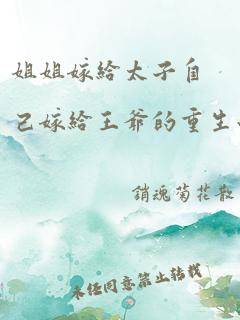 姐姐嫁给太子自
己嫁给王爷的重生
銷魂菊花散
未经同意禁止转载